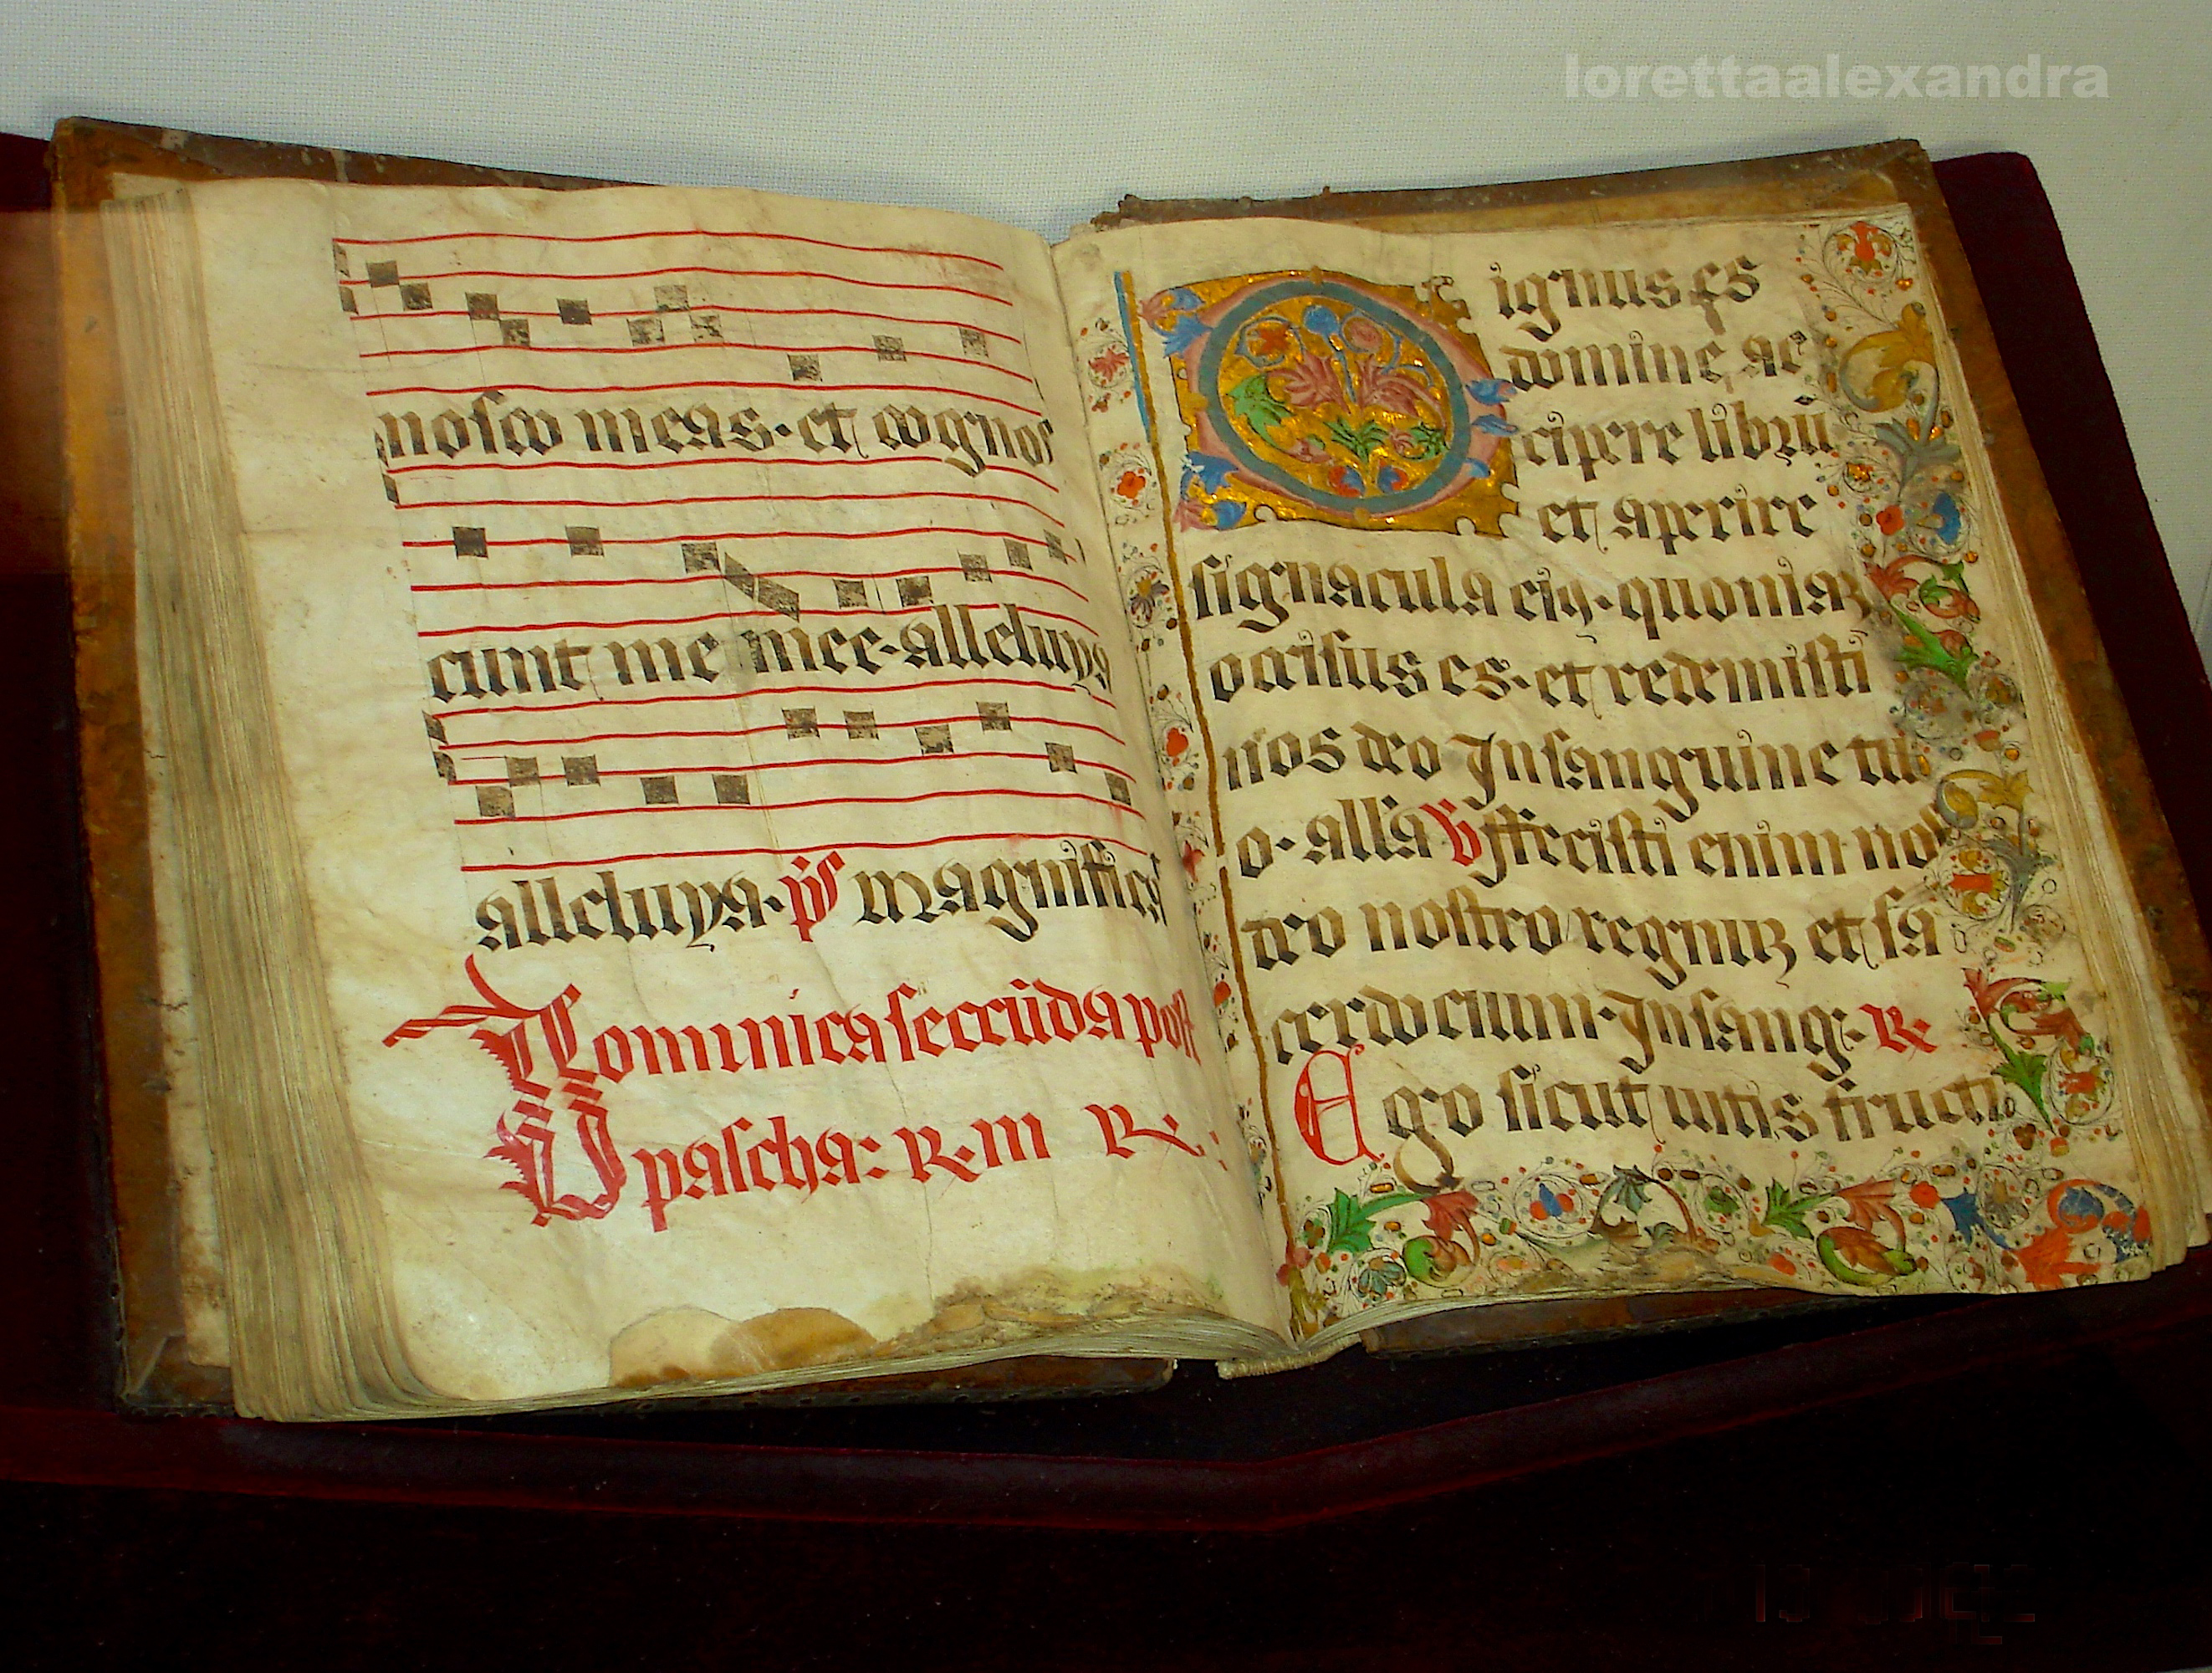 lorettaalexandra
nosco meas· et cognos
cunt me mee· alleluya
alleluya· p̄s magnificā
Dominica secūda post
pascha: R. m R.
Dignus es
domine ac
cipere librū
et aperire
signacula eiꝰ· quoniaꝫ
occisus es· et redemisti
nos deo In sanguine tu
o· allā V̄ ffecisti enim nos
deo nostro regnuꝫ et sa
cerdocium· In sang· R.
Ego sicut uitis fructi